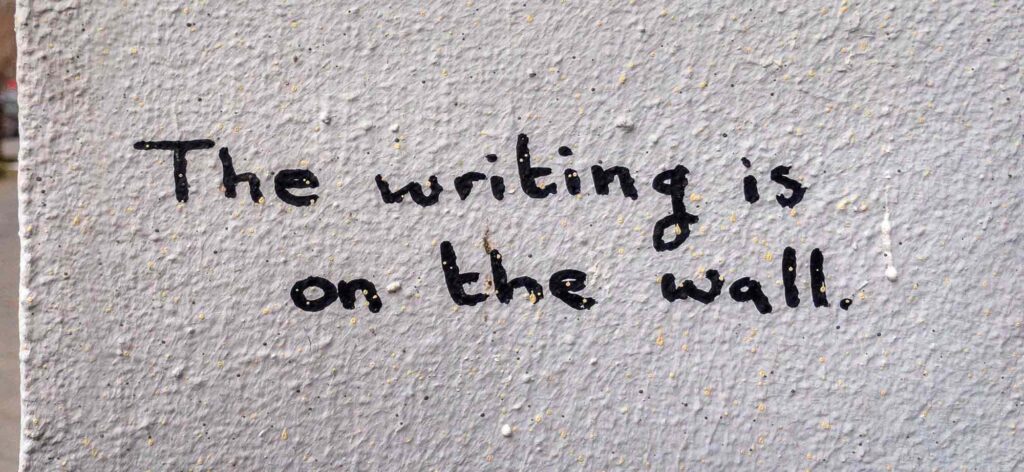 The writing is
on the wall.